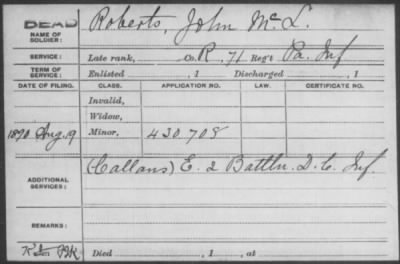 DEAD
NAME OF SOLDIER: Roberts, John McL.
SERVICE: Late rank, Co. R, 71 Reg't Pa. Inf
TERM OF SERVICE: Enlisted , 1 Discharged , 1
DATE OF FILING. CLASS. APPLICATION NO. LAW. CERTIFICATE NO.
Invalid,
Widow,
1890 Aug. 19 Minor, 430.708
ADDITIONAL SERVICES: (Callans) E. 2 Battln. D.C. Inf.
REMARKS:
Died , 1 , at